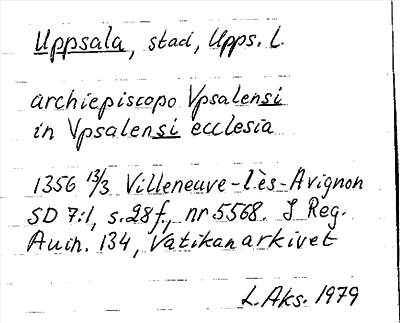 Uppsala, stad, Upps. L.
archiepiscopo Vpsalensi
in Vpsalensi ecclesia
1356 13/3 Villeneuve-lès-Avignon
SD 7:1, s. 28 f., nr 5568. I Reg.
Auin. 134, Vatikanarkivet
L. Aks. 1979